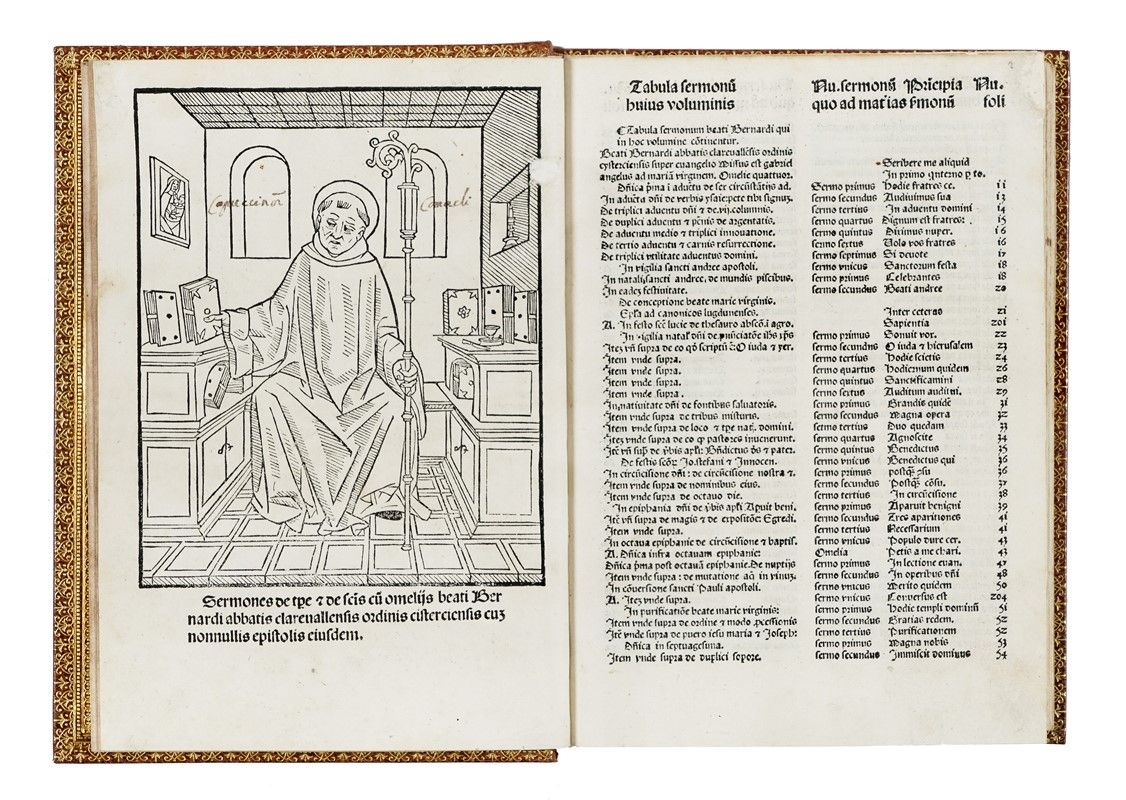 Capuccinor
Canali
Sermones de tpe ⁊ de scĩs cũ omelijs beati Ber
nardi abbatis clareuallensis ordinis cisterciensis cuz
nonnullis epistolis eiusdem.
2
Tabula sermonũ Nu. sermonũ Pr̃icipia Nu.
huius voluminis quo ad mat̃ias ẜmonũ foli
¶ Tabula sermonum beati Bernardi qui
in hoc volumine cõtinentur.
Beati Bernardi abbatis clareuallẽsis ordinis
cysterciensis super euangelio Missus est gabriel Scribere me aliquid
angelus ad mariã virginem. Omelie quattuor. In primo quterno p to.
Dñica pma ĩ aduẽtu de sex circũstãtijs ad. Sermo primus Hodie fratres ce. ii
In aduẽtu dñi de verbis ysaie: pete tibi signuz. sermo secundus Audiuimus sua i3
De triplici aduentu dñi ⁊ de.vij.columnis. sermo tertius In aduentu domini i4
De duplici aduentu ⁊ pẽnis de argentatis. sermo quartus Dignum est fratres: i5
De aduentu medio ⁊ triplici innouatione. sermo quintus Diximus nuper. i6
De tertio aduentu ⁊ carnis resurrectione. sermo sextus Uolo vos fratres i6
De triplici vtilitate aduentus domini. sermo septimus Si deuote i7
In vigilia sancti andree apostoli. sermo vnicus Sanctorum festa i8
In natali sancti andree. de mundis piscibus. sermo primus Celebrantes i8
In eadez festiuitate. sermo secundus Beati andree 20
De conceptione beate marie virginis.
Epľa ad canonicos lugdunenses. Inter ceteras zi
A. In festo scẽ lucie de thesauro abscõ.ĩ agro. Sapientia 20i
In vigilia natal dñi de pnũciatõe ihs xp̃s sermo primus Sonuit vox. 22
Itez vñ supra de eo qđ scriptũ ẽ: O iuda ⁊ yer. sermo secundus O iuda ⁊ hierusalem 23
Item vnde supra. sermo tertius Hodie scietis 24
Item vnde supra. sermo quartus Hodiernum quidem 26
Item vnde supra. sermo quintus Sanctificamini 28
Item vnde supra. sermo sextus Auditum audiui. 29
In natiuitate dñi de fontibus saluatoris. sermo primus Grandis quidẽ 3i
Item vnde supra de tribus mixturis. sermo secundus Magna opera 32
Item vnde supra de loco ⁊ tpe nat. domini. sermo tertius Duo quedam 33
Itez vnde supra de eo qp pastores inuenerunt. sermo quartus Agnoscite 34
Itẽ vñ supˀ de v̾bis apľi: Bñdictus đs ⁊ pater. sermo quintus Benedictus 35
De festis scõr̃ Jo.stefani ⁊ Innocen. sermo vnicus Benedictus qui 36
In circũcisione dñi: de circũcisione nostra ⁊. sermo primus postq̃ su 36
Item vnde supra de nominibus eius. sermo secundus Postq̃ cõsu. 37
Item vnde supra de octauo die. sermo tertius In circũcisione 38
In epiphania dñi de v̾bis apľi Aparuit beni. sermo primus Aparuit benigni 39
Itẽ vñ supra de magis ⁊ de expositõe: Egredi. sermo secundus Tres aparitiones 4i
Item vnde supra. sermo tertius Necessarium 4i
In octaua epiphanie de circũcisione ⁊ baptis. sermo vnicus Populo dure cer. 43
A. Dñica infra octauam epiphanie: Omelia Petis a me chari. 43
Dñica pma post octauã epiphanie. De nuptijs sermo primus In lectione euan. 47
Item vnde supra: de mutatione aq̃ in vinuz. sermo secundus In operibus dñi 48
In cõuersione sancti Pauli apostoli. sermo vnicus Merito quidem 50
A. Itez vnde supra. sermo vnicus Conuersus est 204
In purificatiõe beate marie virginis: sermo primus Hodie templi dominũ 5i
Item vnde supra de ordine ⁊ modo pcessionis sermo secundus Gratias redem. 52
Itẽ vnde supra de puero iesu maria ⁊ Joseph: sermo tertius Purificationem 52
Dñica in septuagesima. sermo primus Magna nobis 53
Item vnde supra de duplici sopore. sermo secundus Immiscit dominus 54